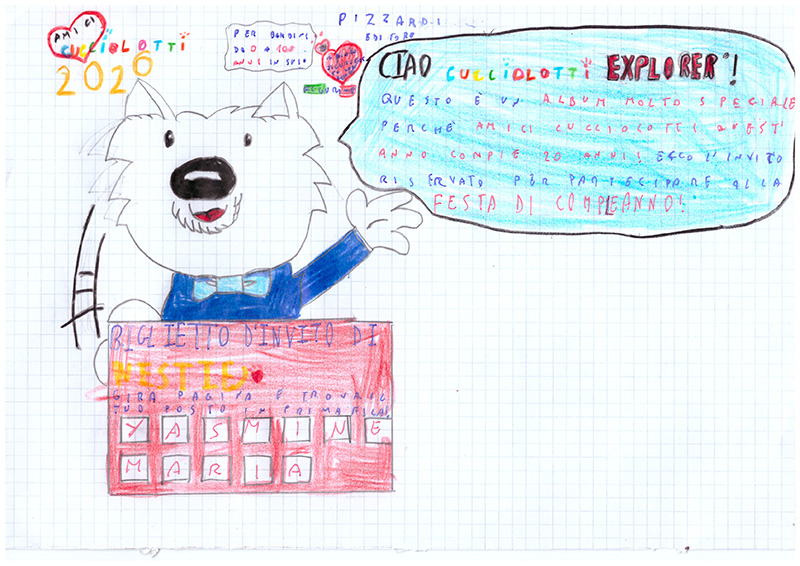 AMICI
CUCCIOLOTTI
2026
PER BAMBINI
DA 0 A 100
ANNI IN SU
PIZZARDI
EDITORE
CIAO CUCCIOLOTTI EXPLORER!
QUESTO È UN ALBUM MOLTO SPECIALE
PERCHÈ AMICI CUCCIOLOTTI QUEST'
ANNO COMPIE 20 ANNI! ECCO L'INVITO
RISERVATO PER PARTECIPARE ALLA
FESTA DI COMPLEANNO!
BIGLIETTO D'INVITO DI
WESTIE
GIRA PAGINA E TROVA IL
TUO POSTO IN PRIMA FILA!
YASMINE
MARIA